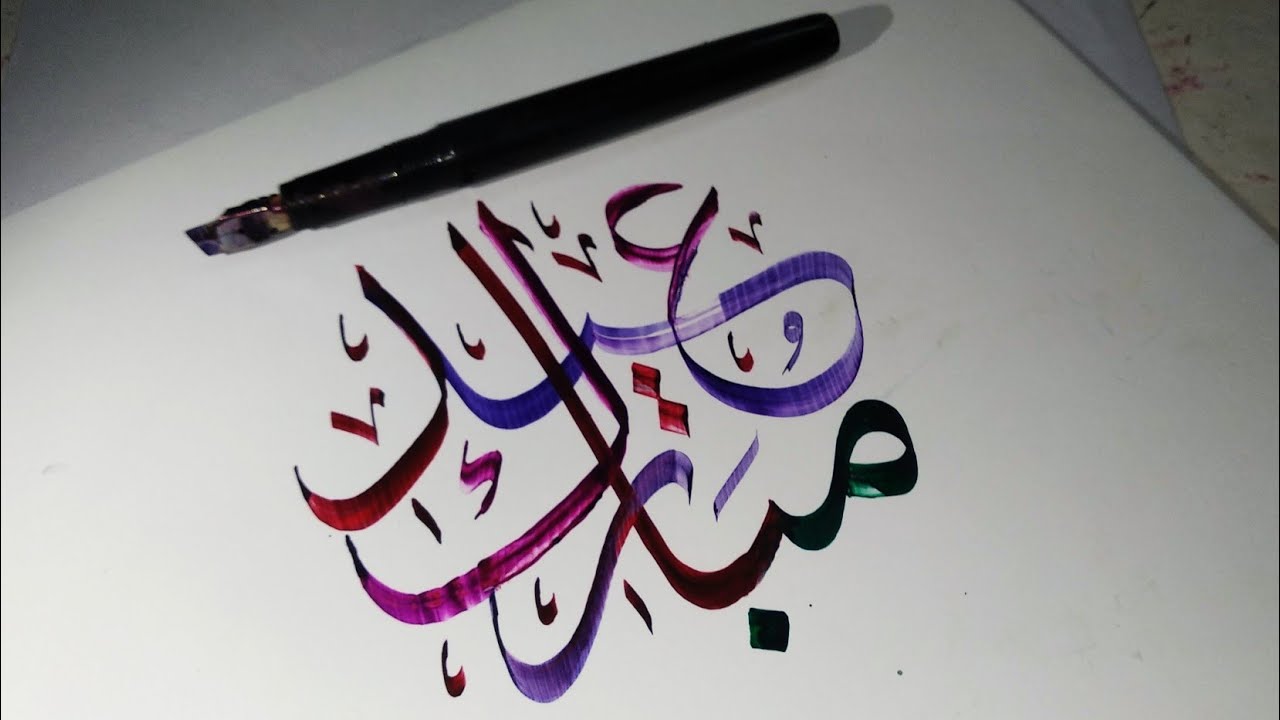 عيد
مبارك